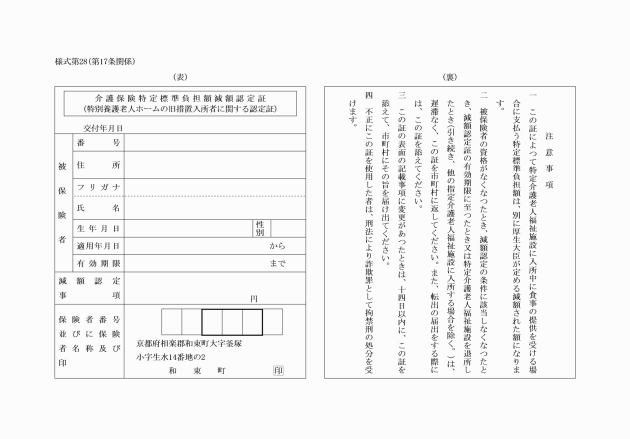 様式第28(第17条関係)
(表)
介護保険特定標準負担額減額認定証
(特別養護老人ホームの旧措置入所者に関する認定証)
交付年月日
被保険者
番号
住所
フリガナ
氏名
生年月日
性別
適用年月日
から
有効期限
まで
減額認定
事項
円
保険者番号
並びに保険
者名称及び
印
京都府相楽郡和束町大字釜塚
小字生水14番地の2
和束町
印
(裏)
注意事項
一 この証によつて特定介護老人福祉施設に入所中に食事の提供を受ける場
合に支払う特定標準負担額は、別に厚生大臣が定める減額された額になりま
す。
二 被保険者の資格がなくなつたとき、減額認定の条件に該当しなくなつたと
き、減額認定証の有効期限に至つたとき又は特定介護老人福祉施設を退所し
たとき(引き続き、他の指定介護老人福祉施設に入所する場合を除く。)は、
遅滞なく、この証を市町村に返してください。また、転出の届出をする際に
は、この証を添えてください。
三 この証の表面の記載事項に変更があつたときは、十四日以内に、この証を
添えて、市町村にその旨を届け出てください。
四 不正にこの証を使用した者は、刑法により詐欺罪として拘禁刑の処分を受
けます。